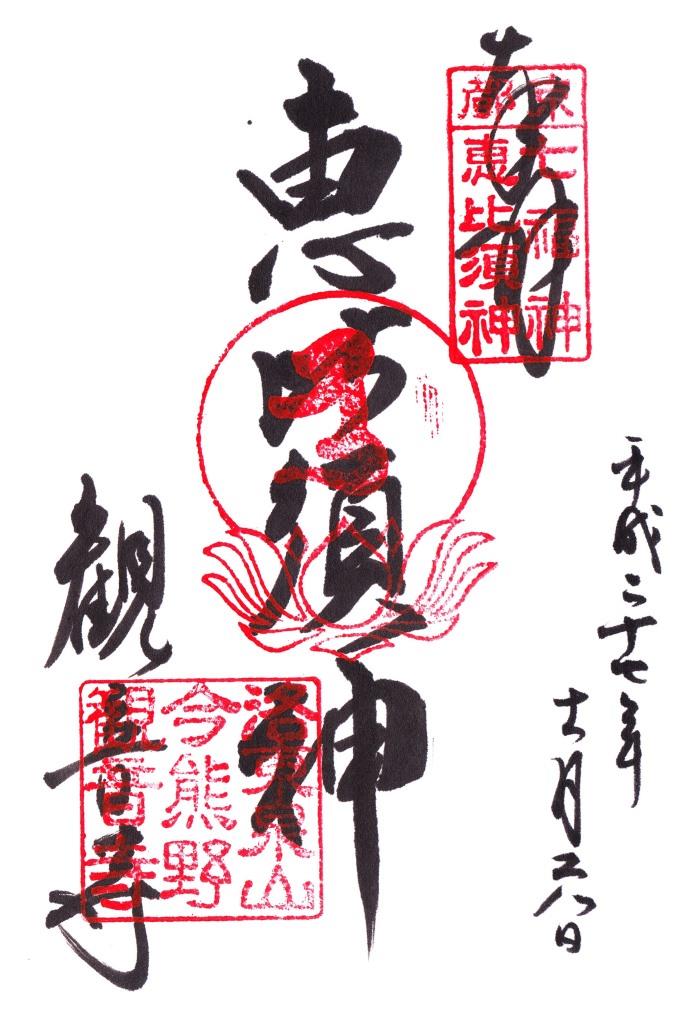 奉拝
京都
七福神
恵比須神
恵比須神
平成二十七年
十一月二八日
観音寺
東山
今熊野
観音寺